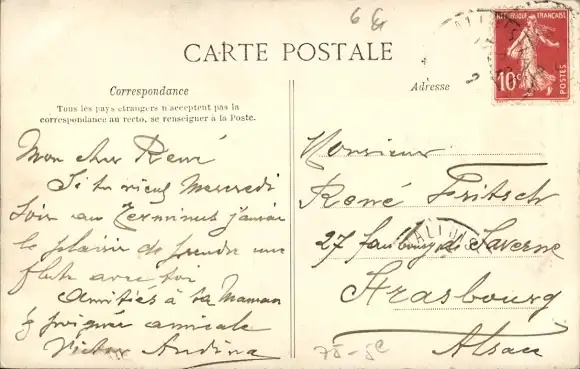 6
RÉPUBLIQUE FRANÇAISE
10c
POSTES
CARTE POSTALE
Correspondance
Tous les pays étrangers n'acceptent pas la
correspondance au recto, se renseigner à la Poste.
Mon cher René
Si tu viens Mercredi
soir au Terminus j'aurai
le plaisir de prendre une
flute avec toi
Amitiés à ta Maman
& poignée amicale
Victor Andina
Adresse
Monsieur
René Fritsch
27 faubourg de Saverne
Strasbourg
Alsace